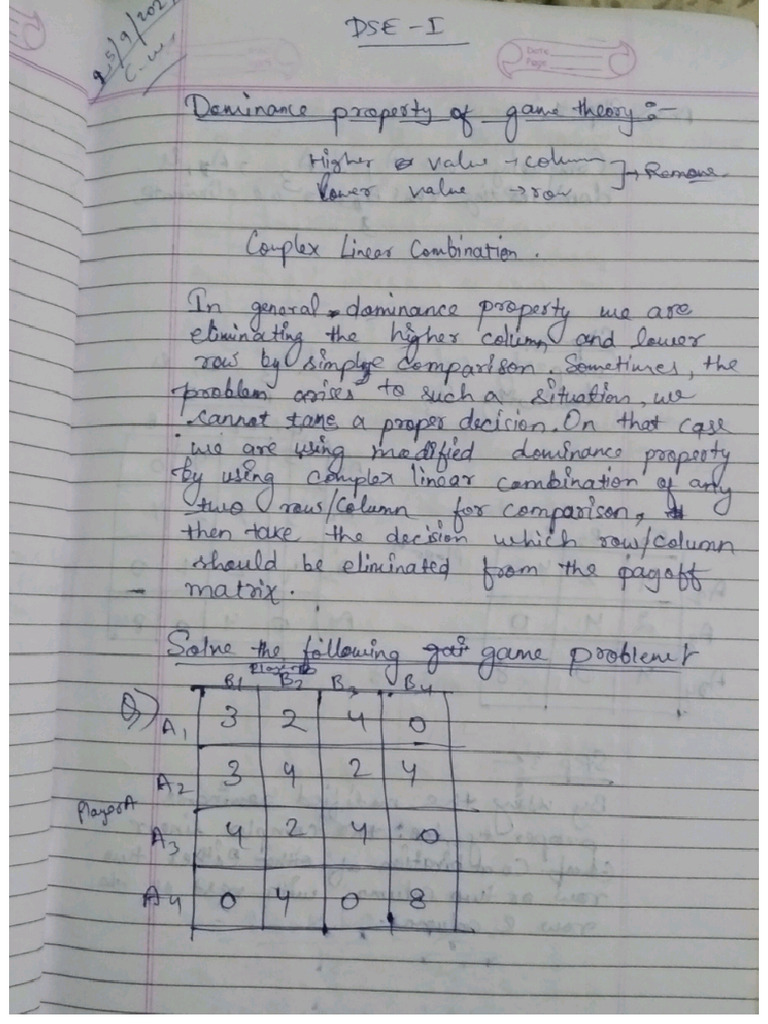 DSE-I
25/9/202
C.W
Date
Page
Dominance property of game theory :-
Higher value → column
Lower value → row
} → Remove
Complex Linear Combination.
In general dominance property we are
eliminating the higher column and lower
row by simple comparison. Sometimes, the
problem arises to such a situation, we
cannot take a proper decision. On that case
we are using modified dominance property
by using complex linear combination of any
two rows/column for comparison,
then take the decision which row/column
should be eliminated from the payoff
matrix.
Solve the following game problem
Player B
B1 B2 B3 B4
Q)
A1 3 2 4 0
A2 3 4 2 4
Player A
A3 4 2 4 0
A4 0 4 0 8